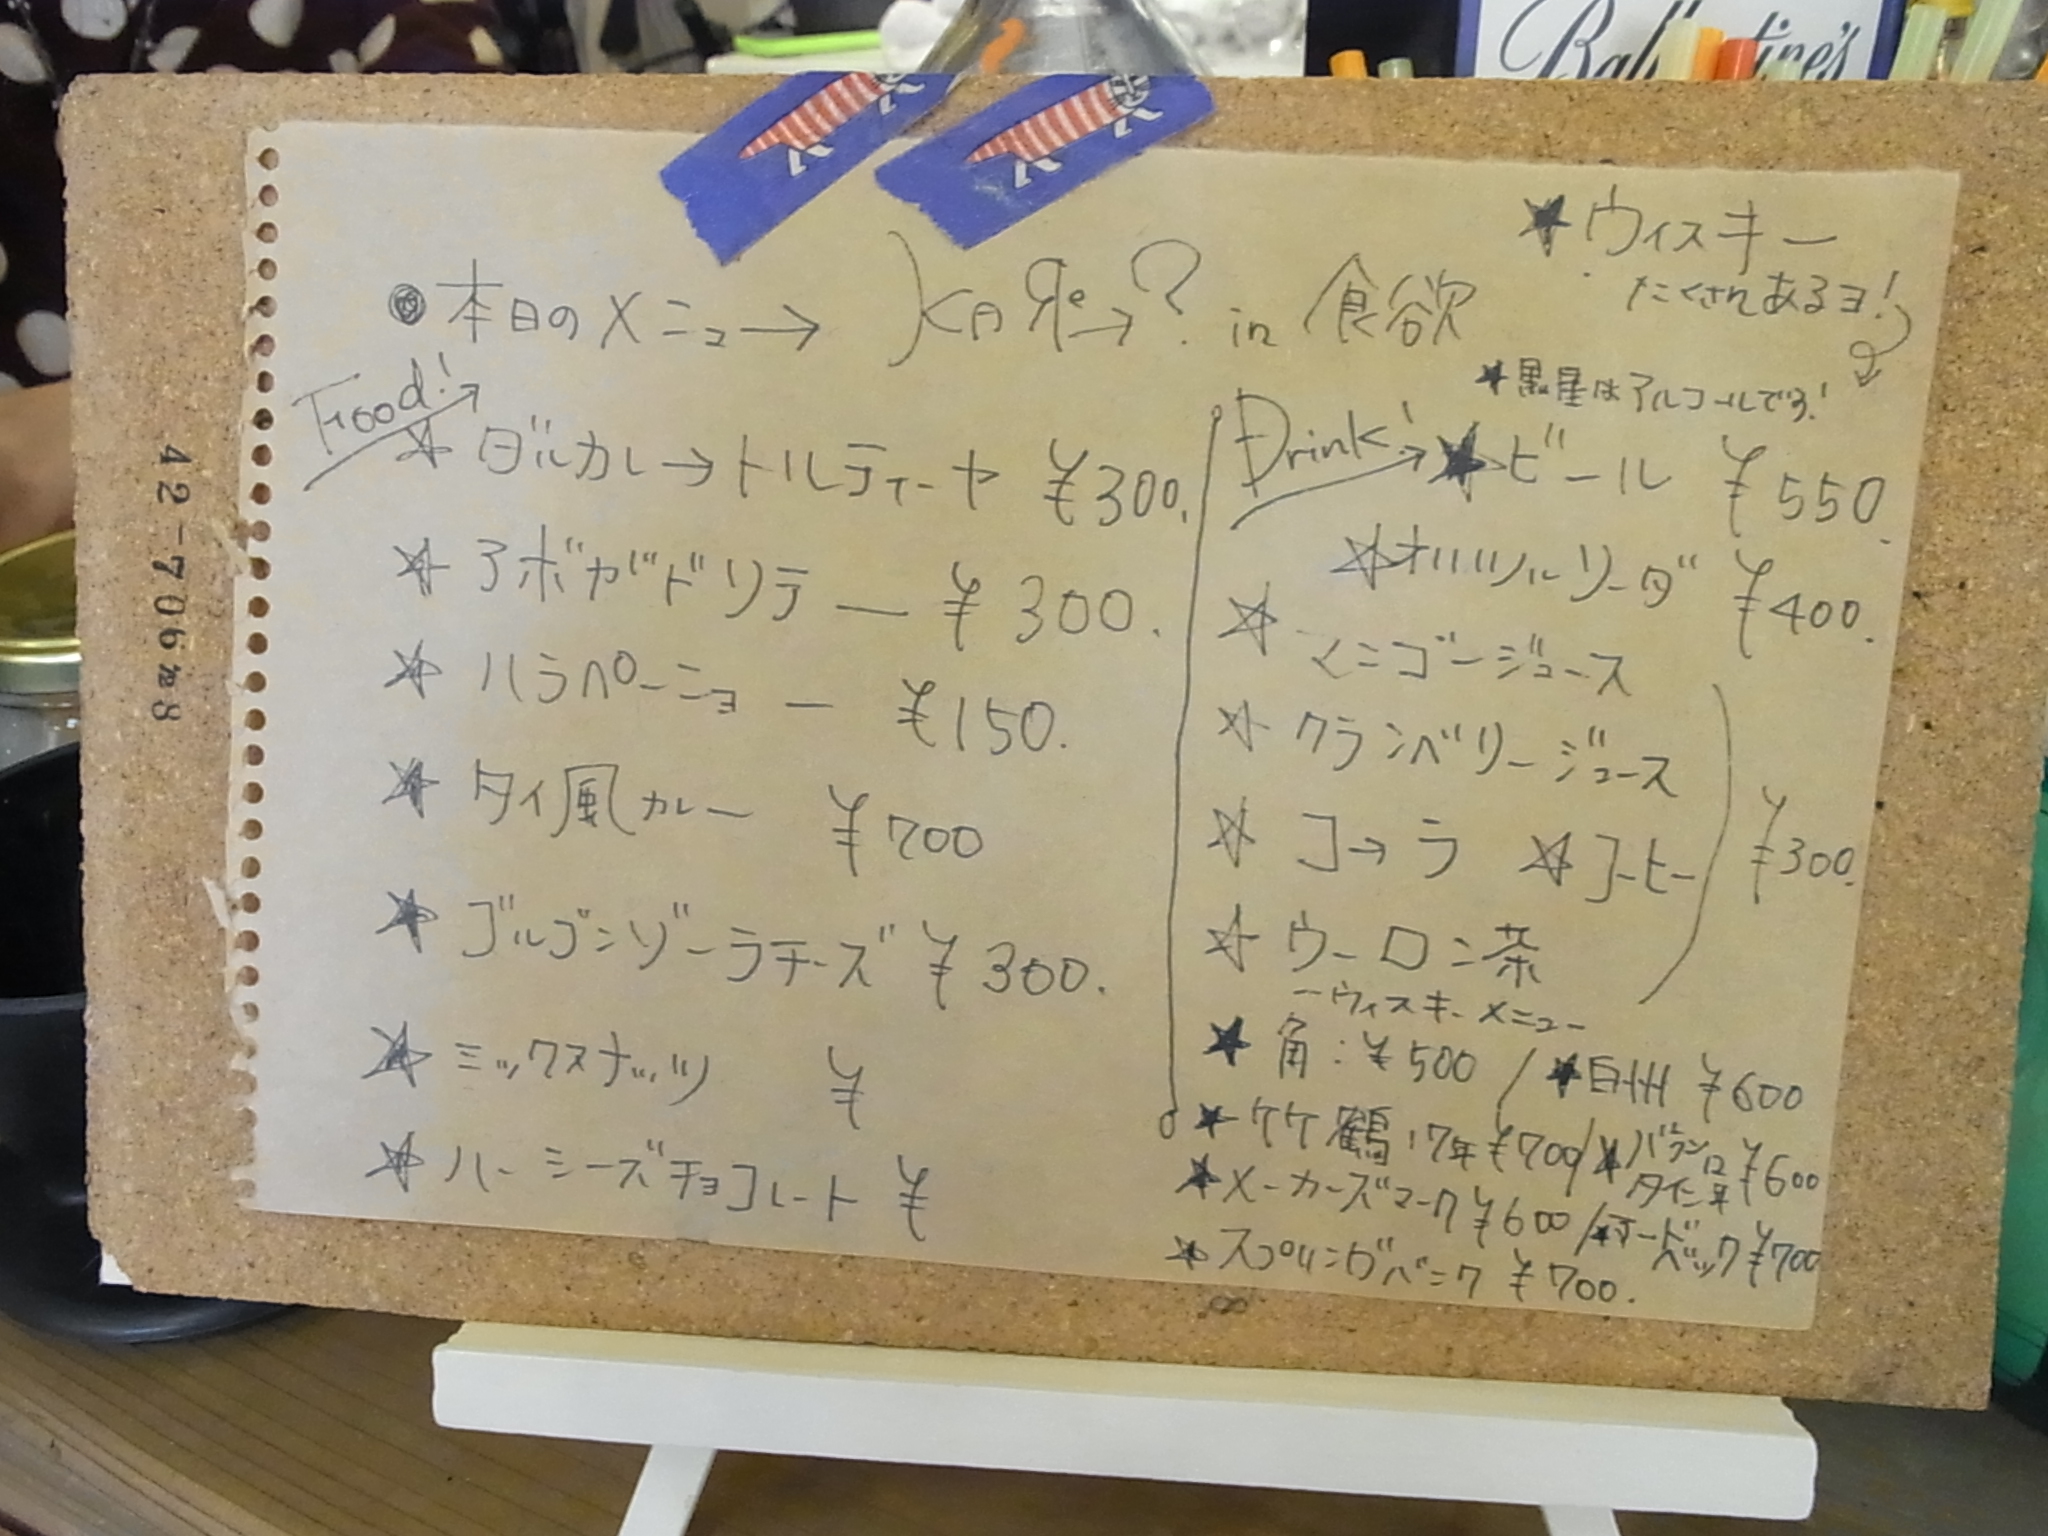 Ballantine's
★ウィスキー
たくさんあるヨ!
◎本日のメニュー→ in 食欲
★黒星はアルコールです!
Food!
☆ ダルカレー→トルティーヤ ¥300.
☆ アボガドリテ — ¥300.
☆ ハラペーニョ — ¥150.
☆ タイ風カレー ¥700
☆ ゴルゴンゾーラチーズ ¥300.
☆ ミックスナッツ ¥
☆ ハーシーズチョコレート ¥
Drink!
★ビール ¥550.
☆ ソーダ ¥400.
☆ マンゴージュース
☆ クランベリージュース
☆ コーラ ☆コーヒー
☆ ウーロン茶
¥300.
ーウィスキーメニュー
★ 角:¥500 / ★白州 ¥600
★ 竹鶴17年¥700/★バランタイン12年¥600
★メーカーズマーク¥600/★ベック¥700
★スプリングバンク ¥700.
42-706 № 8